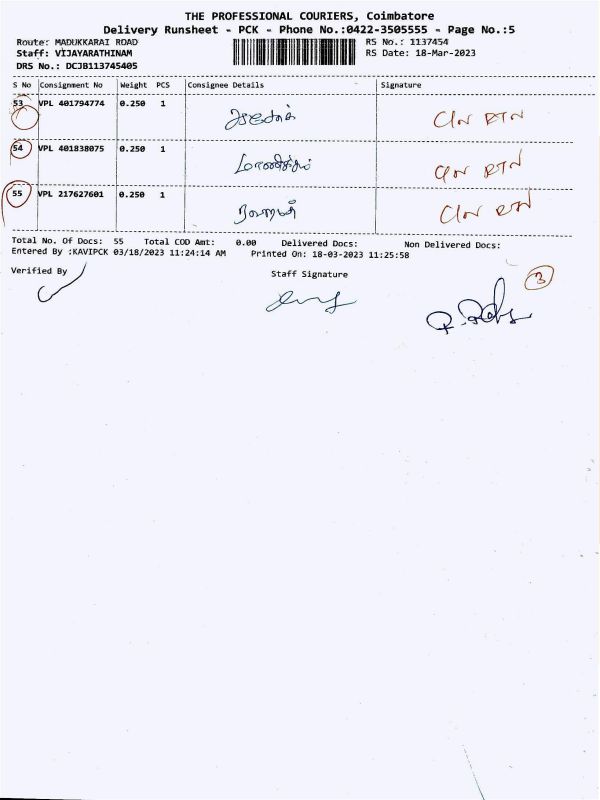 THE PROFESSIONAL COURIERS, Coimbatore
Delivery Runsheet - PCK - Phone No.:0422-3505555 - Page No.:5
Route: MADUKKARAI ROAD RS No.: 1137454
Staff: VIJAYARATHINAM RS Date: 18-Mar-2023
DRS No.: DCJB113745405
S No Consignment No Weight PCS Consignee Details Signature
53 VPL 401794774 0.250 1 C/N RTN
54 VPL 401838075 0.250 1 மாணிக்கம் C/N RTN
55 VPL 217627601 0.250 1 C/N RTN
Total No. Of Docs: 55 Total COD Amt: 0.00 Delivered Docs: Non Delivered Docs:
Entered By :KAVIPCK 03/18/2023 11:24:14 AM Printed On: 18-03-2023 11:25:58
Verified By Staff Signature 3